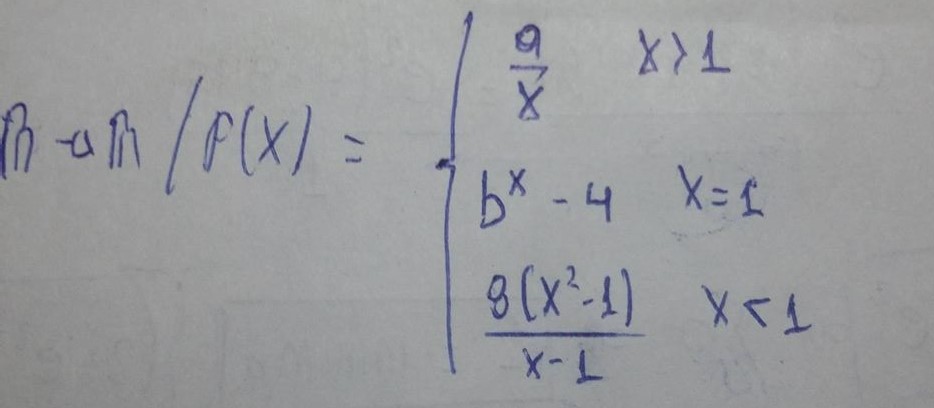 ℝ → ℝ / F(X) = {
a/x    X > 1
b^x - 4    X = 1
8(X²-1)/(x-1)    X < 1